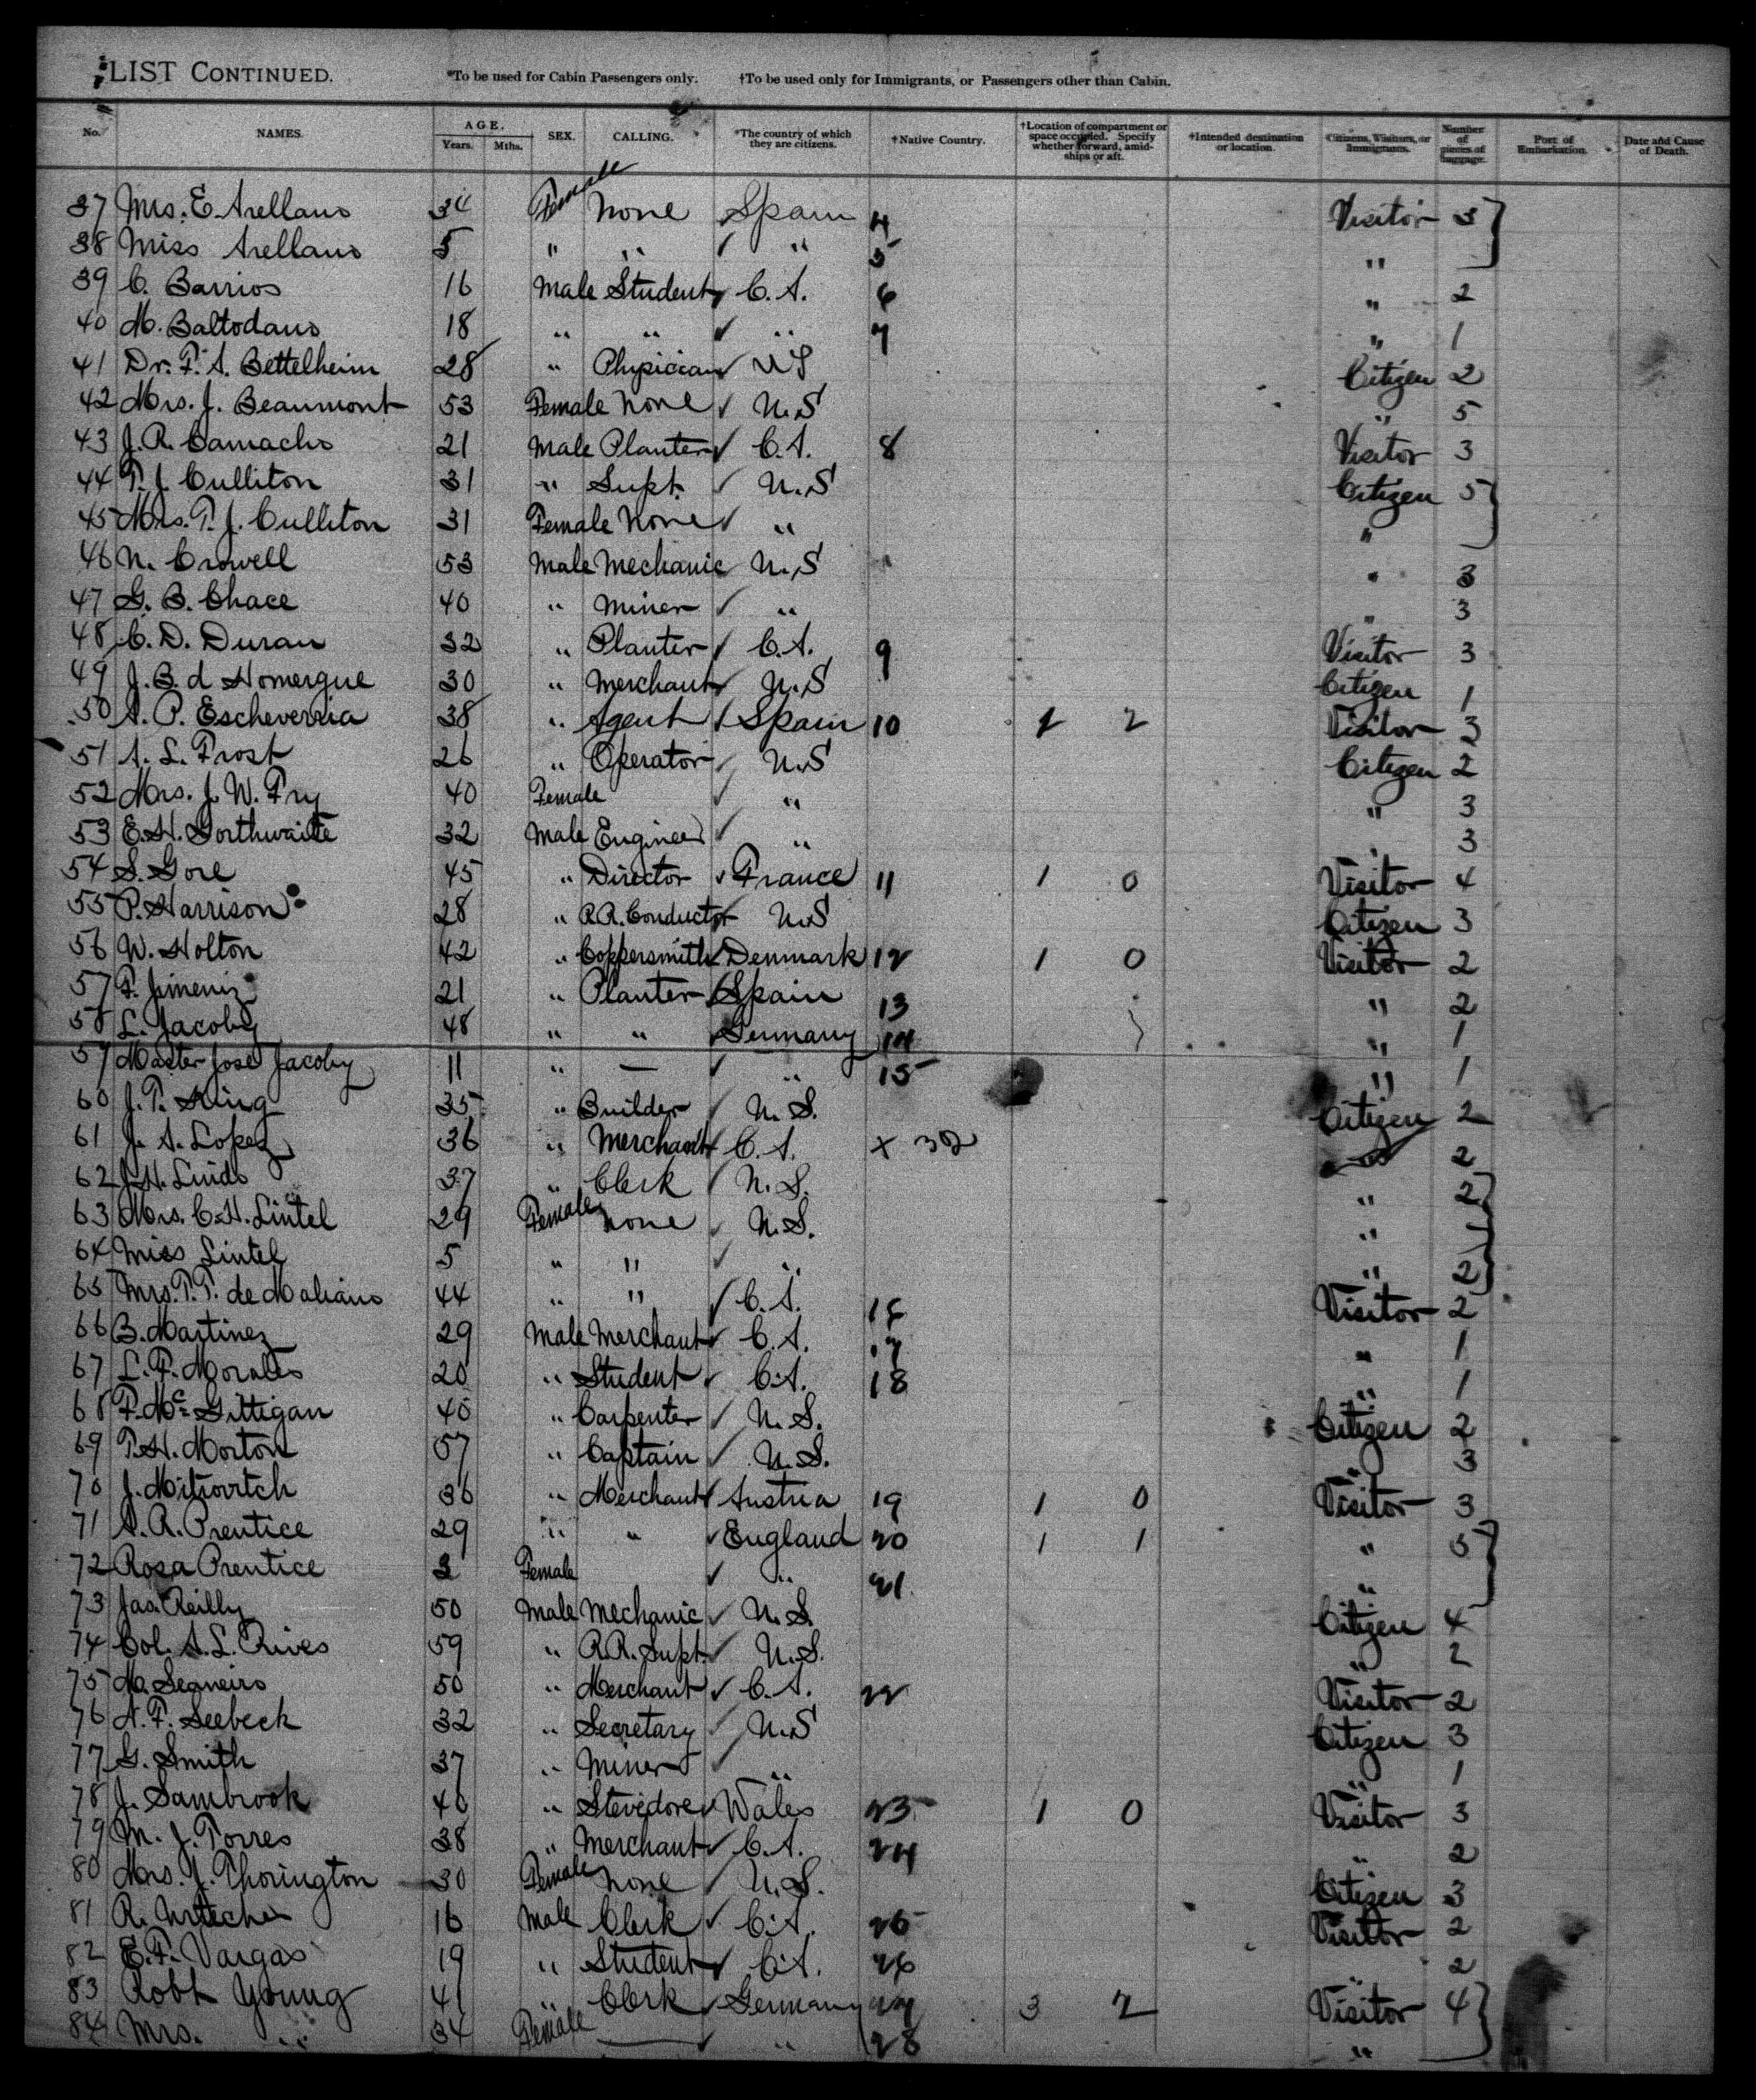 LIST CONTINUED. *To be used for Cabin Passengers only. †To be used only for Immigrants, or Passengers other than Cabin.
No. NAMES. AGE. Years. Mths. SEX. CALLING. *The country of which they are citizens. †Native Country. †Location of compartment or space occupied. Specify whether forward, amidships or aft. †Intended destination or location. Citizens, Visitors, or Immigrants. Number of pieces of baggage. Port of Embarkation. Date and Cause of Death.
37 Mrs. E. Arellano 34 Female None Spain 4 Visitor 3
38 Miss Arellano 5 " " ✓ " 5 "
39 C. Barrios 16 Male Student ✓ C.A. 6 " 2
40 M. Baltodano 18 " " ✓ " 7 " 1
41 Dr. F. A. Bettelheim 28 " Physician ✓ US Citizen 2
42 Mrs. J. Beaumont 53 Female None ✓ U.S " 5
43 J. R. Camacho 21 Male Planter ✓ C.A. 8 Visitor 3
44 T. J. Culliton 31 " Supt. ✓ U.S Citizen 5
45 Mrs. T. J. Culliton 31 Female None ✓ " "
46 N. Crowell 53 Male Mechanic U.S " 3
47 G. B. Chace 40 " Miner ✓ " " 3
48 C. D. Duran 32 " Planter ✓ C.A. 9 Visitor 3
49 J. B. d Homergue 30 " Merchant ✓ U.S Citizen 1
50 A. P. Escheverria 38 " Agent ✓ Spain 10 1 2 Visitor 3
51 A. L. Frost 26 " Operator ✓ U.S Citizen 2
52 Mrs. J. W. Fry 40 Female ✓ " " 3
53 E. H. Gorthwaite 32 Male Engineer ✓ " " 3
54 S. Gore 45 " Director ✓ France 11 1 0 Visitor 4
55 P. Harrison 28 " R.R. Conductor U.S Citizen 3
56 W. Holton 42 " Coppersmith ✓ Denmark 12 1 0 Visitor 2
57 F. Jimeniz 21 " Planter ✓ Spain 13 " 2
58 L. Jacoby 48 " " Germany 14 " 1
59 Master Jose Jacoby 11 " — ✓ " 15 " 1
60 J. T. King 35 " Builder ✓ U.S. Citizen 2
61 J. A. Lopez 36 " Merchant ✓ C.A. x 32 2
62 J. H. Lindo 37 " Clerk ✓ U.S. " 2
63 Mrs. C. H. Lintel 29 Female None ✓ U.S. "
64 Miss Lintel 5 " " ✓ " " 2
65 Mrs. T. T. de Maliano 44 " " ✓ C.A. 16 Visitor 2
66 B. Martinez 29 Male Merchant ✓ C.A. 17 " 1
67 L. F. Morales 20 " Student ✓ C.A. 18 " 1
68 F. Mc Gittigan 40 " Carpenter ✓ U.S. Citizen 2
69 T. H. Morton 57 " Captain ✓ U.S. " 3
70 J. Mitrovitch 36 " Merchant ✓ Austria 19 1 0 Visitor 3
71 A. R. Prentice 29 " " ✓ England 20 1 1 " 5
72 Rosa Prentice 3 Female ✓ " 21 "
73 Jas. Reilly 50 Male Mechanic ✓ U.S. Citizen 4
74 Col. A. L. Rives 59 " R.R. Supt. ✓ U.S. " 2
75 M. Seqneiro 50 " Merchant ✓ C.A. 22 Visitor 2
76 A. F. Seebeck 32 " Secretary ✓ U.S Citizen 3
77 G. Smith 37 " Miner ✓ " " 1
78 J. Sambrook 40 " Stevedore ✓ Wales 23 1 0 Visitor 3
79 M. J. Torres 38 " Merchant ✓ C.A. 24 " 2
80 Mrs. J. Thorington 30 Female None ✓ U.S. Citizen 3
81 R. 16 Male Clerk ✓ C.A. 25 Visitor 2
82 E. F. Vargas 19 " Student ✓ C.A. 26 " 2
83 Robt Young 41 " Clerk ✓ Germany 27 3 2 Visitor 4
84 Mrs. " 34 Female — ✓ " 28 "